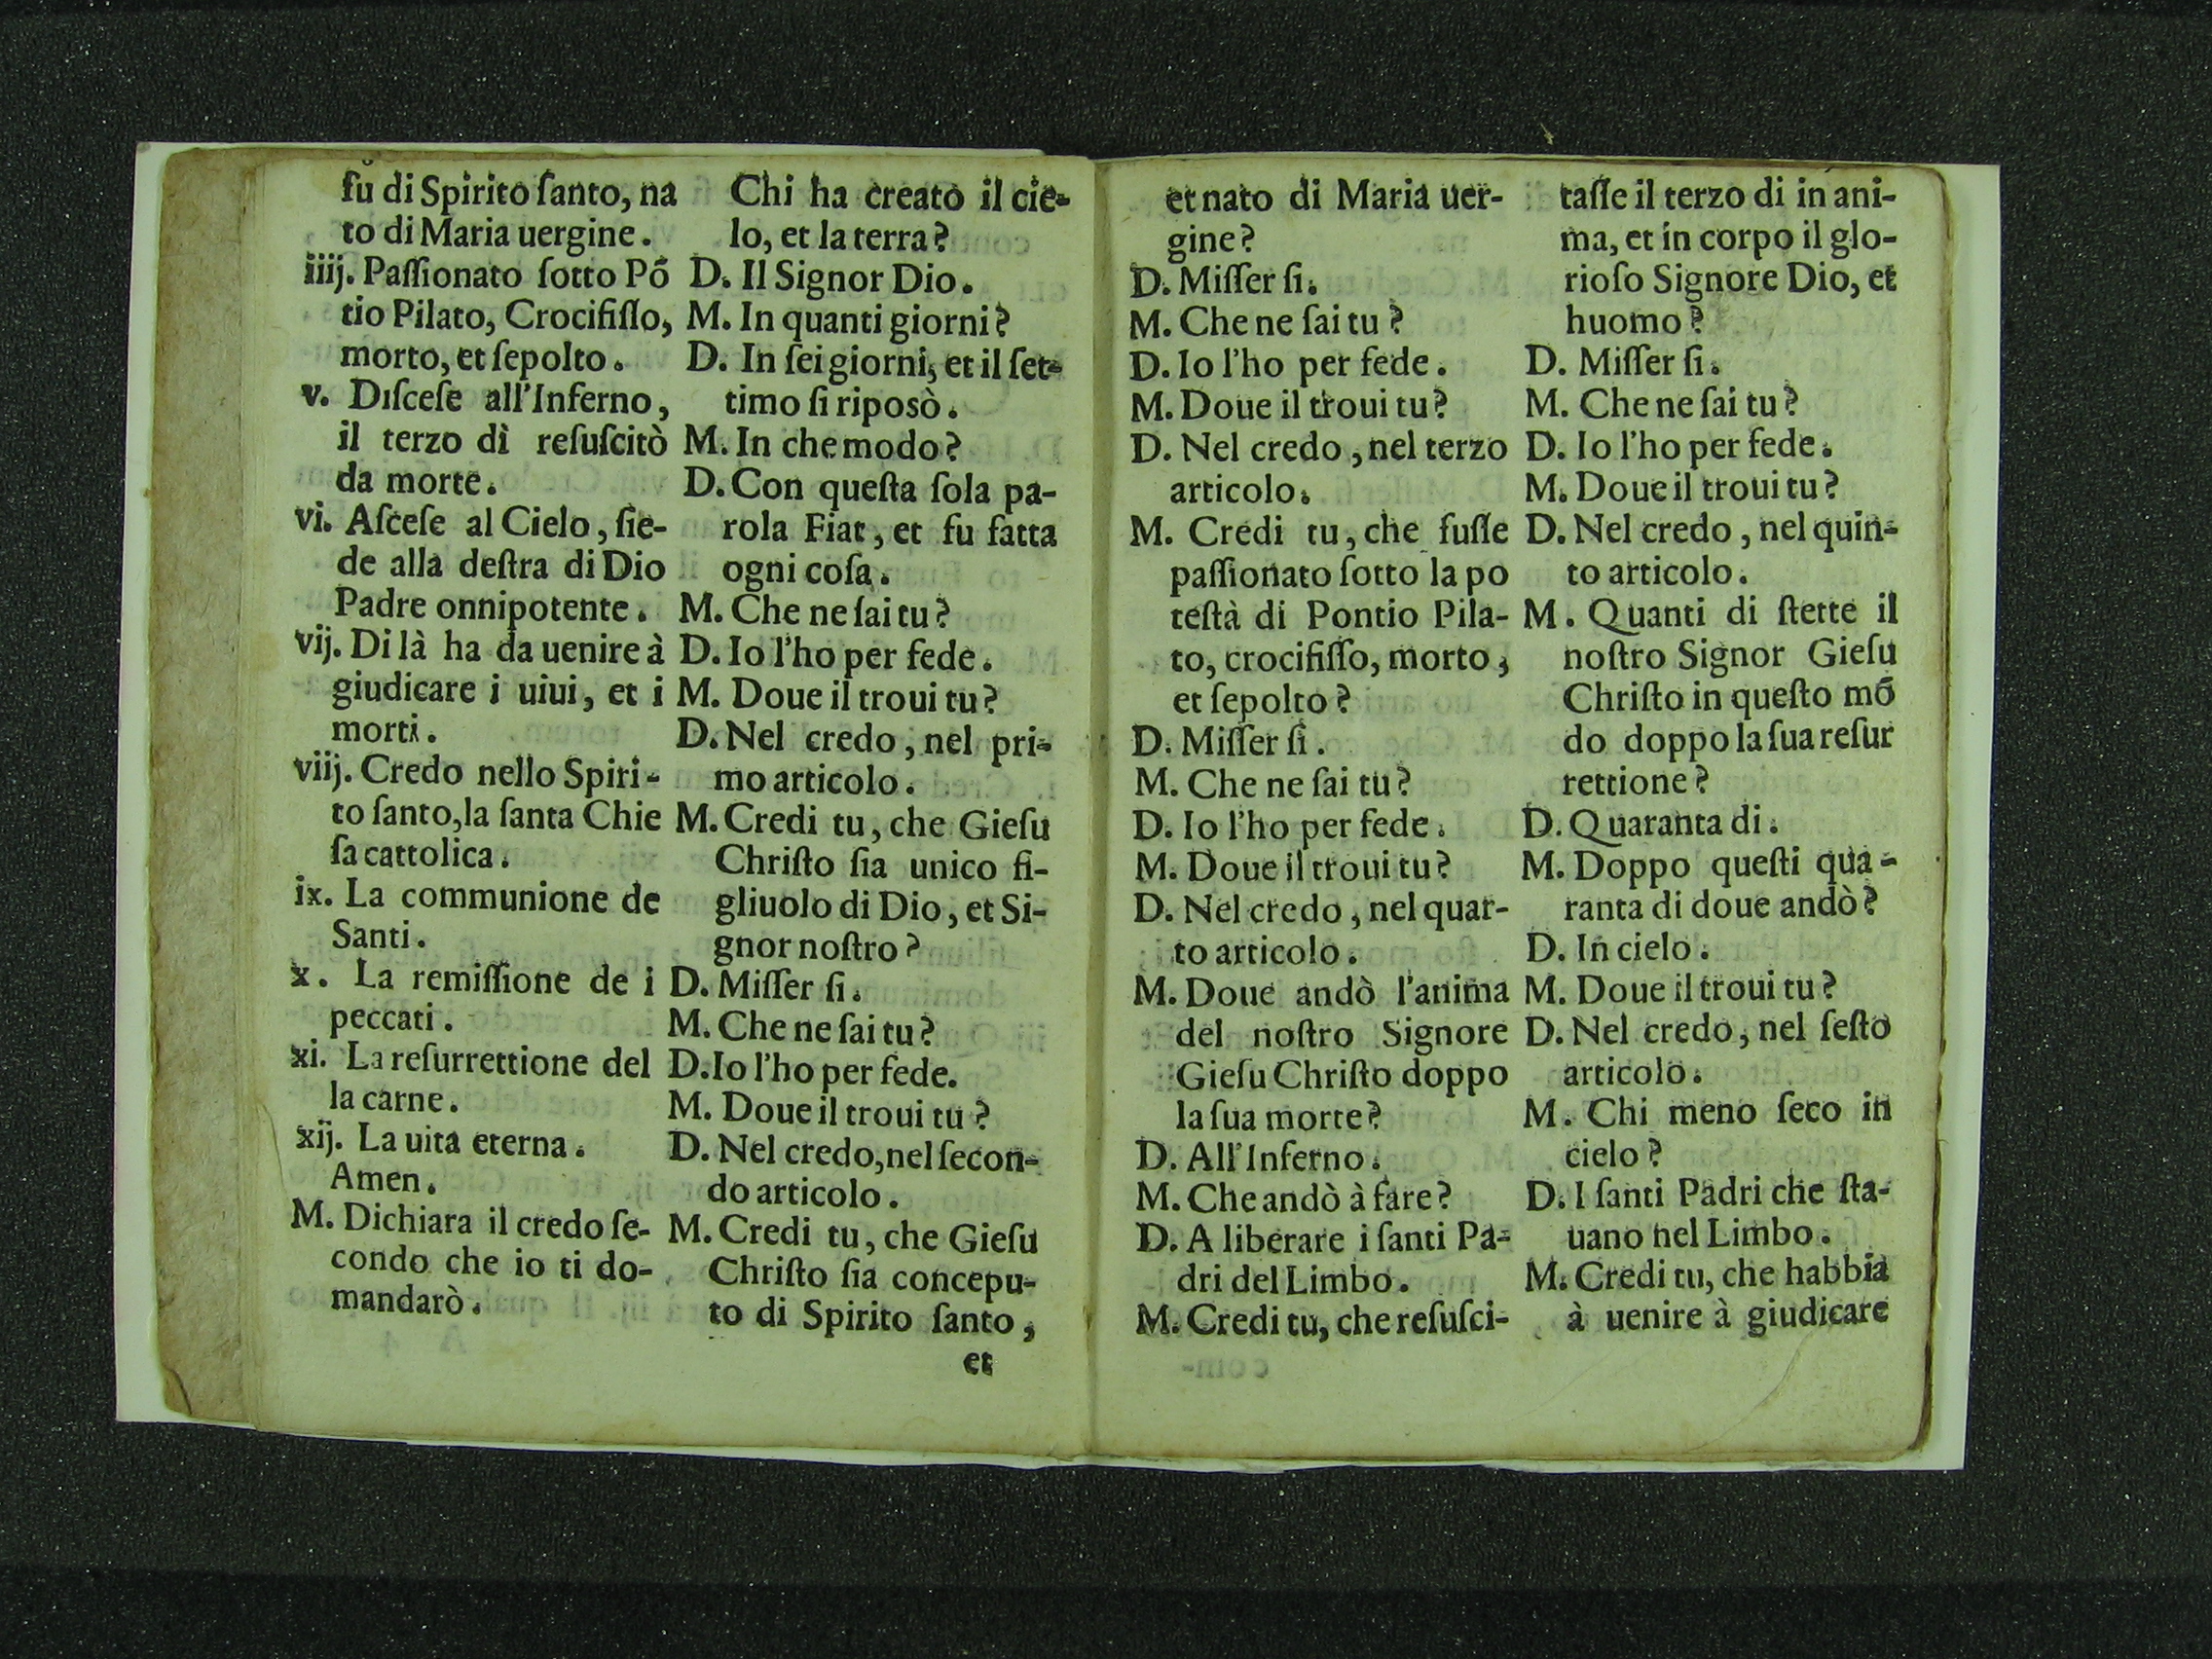 fu di Spirito ſanto, na
to di Maria uergine.
iiij. Paſſionato ſotto Põ
tio Pilato, Crocifiſſo,
morto, et ſepolto.
v. Diſceſe all'Inferno,
il terzo dì reſuſcitò
da morte.
vi. Aſceſe al Cielo, ſie-
de alla deſtra di Dio
Padre onnipotente.
vij. Di là ha da uenire à
giudicare i uiui, et i
morti.
viij. Credo nello Spiri-
to ſanto, la ſanta Chie
ſa cattolica.
ix. La communione de
Santi.
x. La remiſſione de i
peccati.
xi. La reſurrettione del
la carne.
xij. La uita eterna.
Amen.
M. Dichiara il credo ſe-
condo che io ti do-
mandarò.
Chi ha creato il cie-
lo, et la terra?
D. Il Signor Dio.
M. In quanti giorni?
D. In ſei giorni, et il ſet-
timo ſi riposò.
M. In che modo?
D. Con queſta ſola pa-
rola Fiat, et fu fatta
ogni coſa.
M. Che ne ſai tu?
D. Io l'ho per fede.
M. Doue il troui tu?
D. Nel credo, nel pri-
mo articolo.
M. Credi tu, che Gieſu
Chriſto ſia unico fi-
gliuolo di Dio, et Si-
gnor noſtro?
D. Miſſer ſi.
M. Che ne ſai tu?
D. Io l'ho per fede.
M. Doue il troui tu?
D. Nel credo, nel ſecon-
do articolo.
M. Credi tu, che Gieſu
Chriſto ſia concepu-
to di Spirito ſanto,
et
et nato di Maria uer-
gine?
D. Miſſer ſi.
M. Che ne ſai tu?
D. Io l'ho per fede.
M. Doue il troui tu?
D. Nel credo, nel terzo
articolo.
M. Credi tu, che fuſſe
paſſionato ſotto la po
teſtà di Pontio Pila-
to, crocifiſſo, morto,
et ſepolto?
D. Miſſer ſi.
M. Che ne ſai tu?
D. Io l'ho per fede.
M. Doue il troui tu?
D. Nel credo, nel quar-
to articolo.
M. Doue andò l'anima
del noſtro Signore
Gieſu Chriſto doppo
la ſua morte?
D. All'Inferno.
M. Che andò à fare?
D. A liberare i ſanti Pa-
dri del Limbo.
M. Credi tu, che reſuſci-
taſſe il terzo di in ani-
ma, et in corpo il glo-
rioſo Signore Dio, et
huomo?
D. Miſſer ſi.
M. Che ne ſai tu?
D. Io l'ho per fede.
M. Doue il troui tu?
D. Nel credo, nel quin-
to articolo.
M. Quanti di ſtette il
noſtro Signor Gieſu
Chriſto in queſto mõ
do doppo la ſua reſur
rettione?
D. Quaranta di.
M. Doppo queſti qua-
ranta di doue andò?
D. In cielo.
M. Doue il troui tu?
D. Nel credo, nel ſeſto
articolo.
M. Chi meno ſeco in
cielo?
D. I ſanti Padri che ſta-
uano nel Limbo.
M. Credi tu, che habbia
à uenire à giudicare